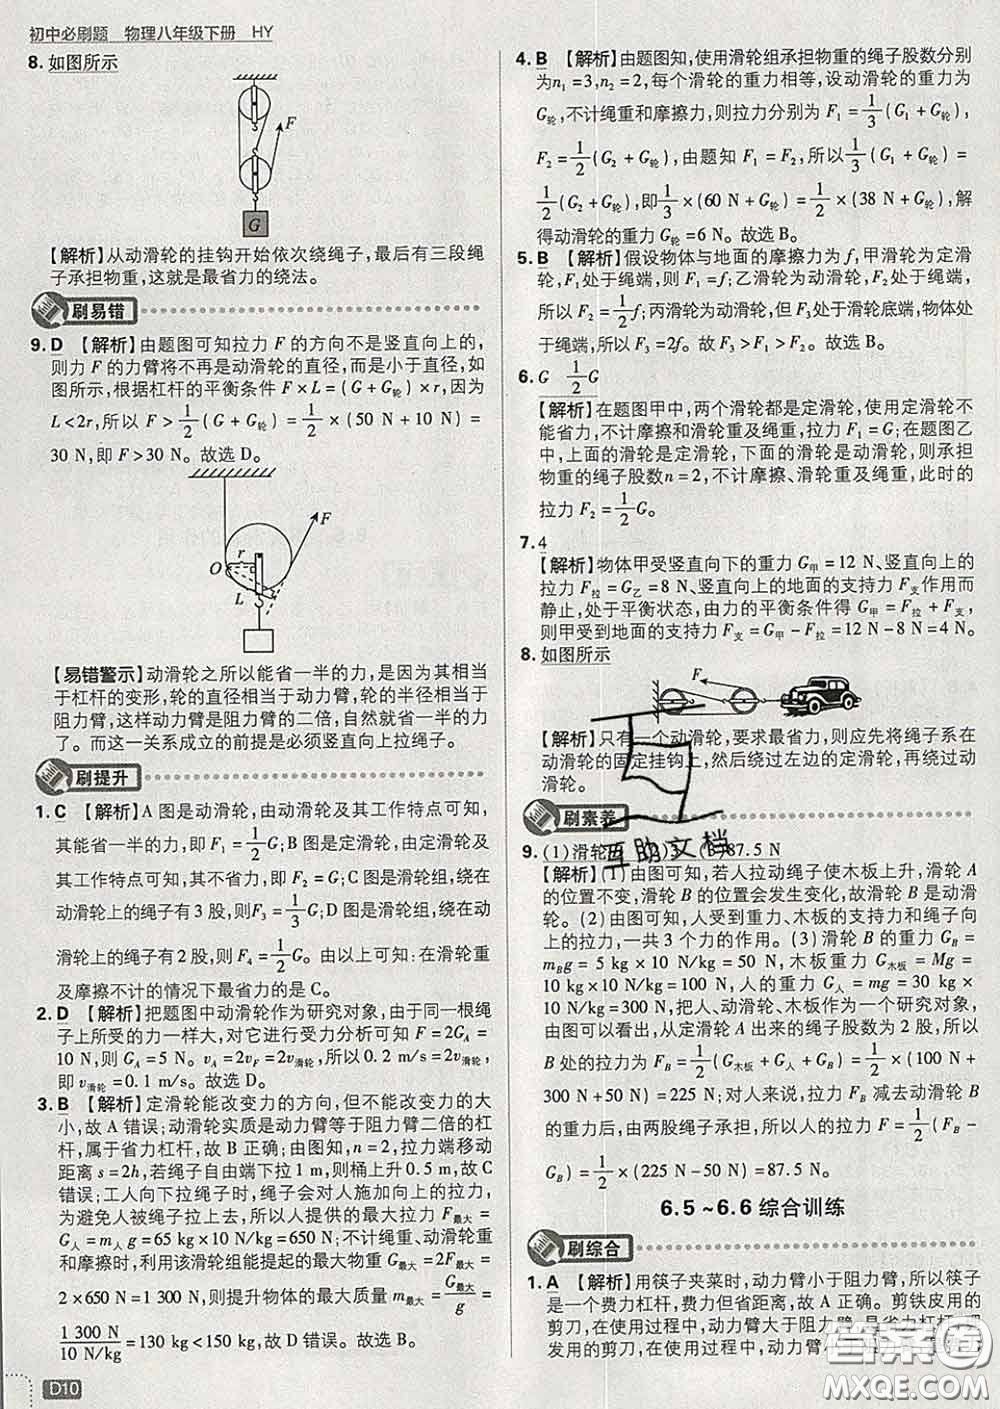 初中必刷题 物理八年级下册 HY
8. 如图所示
F
G
【解析】从动滑轮的挂钩开始依次绕绳子,最后有三段绳
子承担物重,这就是最省力的绕法。
刷易错
9. D 【解析】由题图可知拉力 F 的方向不是竖直向上的,
则力 F 的力臂将不再是动滑轮的直径,而是小于直径,如
图所示,根据杠杆的平衡条件 F×L=(G+G轮)×r,因为
L<2r,所以 F>1/2(G+G轮)=1/2×(50 N+10 N)=
30 N,即 F>30 N。故选 D。
F
r
O
L
【易错警示】动滑轮之所以能省一半的力,是因为相当
于杠杆的变形,轮的直径相当于动力臂,轮的半径相当于
阻力臂,这样动力臂是阻力臂的二倍,自然就省了一半的
力。而这一关系成立的前提是必须竖直向上拉绳子。
刷提升
1. C 【解析】A 图是动滑轮,由动滑轮及其工作特点可知,
其能省一半的力,即 F1=1/2G;B 图是定滑轮,由定滑轮及
其工作特点可知,其不省力,即 F2=G;C 图是滑轮组,绕在
动滑轮上的绳子有 3 股,则F3=1/3G;D 图是滑轮组,绕在
动滑轮上的绳子有 2 股,则 F4=1/2G。由此可知:在滑轮重
及摩擦不计的情况下最省力的是 C。
2. D 【解析】把题图中动滑轮作为研究对象,由于同一根绳
子上所受的力一样大,对它进行受力分析可知 F=2GA=
10 N,则 GA=5 N。vA=2vF=2v滑轮,所以 0.2 m/s=2v滑轮,
即 v滑轮=0.1 m/s。故选 D。
3. B 【解析】定滑轮能改变力的方向,但不能改变力的大
小,故 A 错误;动滑轮实质是动力臂等于阻力臂二倍的杠
杆,属于省力杠杆,故 B 正确;由图知,n=2,拉力端移动
距离 s=2h,若绳子自由端下拉 1 m,则桶上升 0.5 m,故 C
错误;工人向下拉绳子时,绳子会对人施加向上的拉力,
为避免人被绳子拉上去,所以人提供的最大拉力 F最大=
G人=m人g=65 kg×10 N/kg=650 N;不计绳重、动滑轮重
及摩擦,利用该滑轮组能提起的最大物重 G最大=2F最大=
2×650 N=1 300 N,则提升物体的最大质量 m最大=G最大/g=
1 300 N/10 N/kg=130 kg<150 kg,故 D 错误。故选 B。
D10
4. B 【解析】由题图知,使用滑轮组承担物重的绳子股数分
别为n1=3,n2=2,每个滑轮的重力相等,设动滑轮的重力为
G轮,不计绳重和摩擦力,则拉力分别为 F1=1/3(G1+G轮),
F2=1/2(G2+G轮),由题知 F1=F2,所以1/3(G1+G轮)=
1/2(G2+G轮),即1/3×(60 N+G轮)=1/2×(38 N+G轮),解
得动滑轮的重力 G轮=6 N。故选 B。
5. B 【解析】假设物体与地面的摩擦力为f,甲滑轮为定滑
轮,F1处于绳端,则 F1=f,乙滑轮为动滑轮,F2处于绳端,
所以 F2=1/2f;丙滑轮为动滑轮,但是 F3处于滑轮底端,物体
处于绳端,所以 F3=2f。故 F3>F1>F2。故选 B。
6. G 1/2G
【解析】在题图甲中,两个滑轮都是定滑轮,使用定滑轮不
能省力,不计摩擦和滑轮重及绳重,拉力 F1=G;在题图乙
中,上面的滑轮是定滑轮,下面的滑轮是动滑轮,则承担
物重的绳子股数n=2,不计摩擦、滑轮重及绳重,此时的
拉力 F2=1/2G。
7. 4
【解析】物体甲受竖直向下的重力 G甲=12 N、竖直向上的
拉力 F拉=G乙=8 N、竖直向上的地面的支持力 F支作用而
静止,处于平衡状态,由力的平衡条件得 G甲=F拉+F支,
则甲受到地面的支持力 F支=G甲-F拉=12 N-8 N=4 N。
8. 如图所示
F
【解析】只有一个动滑轮,要求最省力,则应先将绳子系在
动滑轮的固定挂钩上,然后绕过左边的定滑轮,再绕过动
滑轮。
刷素养
互助文档
9. (1)滑轮B (2)3 (3)87.5 N
【解析】(1)由图可知,若人拉动绳子使木板上升,滑轮 A
的位置不变,滑轮 B 的位置会发生变化,故滑轮 B 是动滑
轮。(2)由图可知,人受到重力、木板的支持力和绳子向
上的拉力,一共 3 个力的作用。(3)滑轮 B 的重力 GB=
mBg=5 kg×10 N/kg=50 N,木板重力 G木板=Mg=
10 kg×10 N/kg=100 N,人的重力 G人=mg=30 kg×
10 N/kg=300 N,把人、动滑轮、木板作为一个研究对象,
由图可以看出,从定滑轮 A 出来的绳子股数为 2 股,所以
B 处的拉力为 FB=1/2(G木板+G人+GB)=1/2×(100 N+
300 N+50 N)=225 N。由题图可知,拉力 FB 减去动滑轮 B
的重力后,由两股绳子承担,所以人的拉力 F=1/2(FB-
GB)=1/2×(225 N-50 N)=87.5 N。
6.5~6.6 综合训练
刷综合
1. A 【解析】用筷子夹菜时,动力臂小于阻力臂,所以筷子
是一个费力杠杆,费力但省距离,故 A 正确。剪铁皮用的
剪刀,在使用过程中,动力臂大于阻力臂,是省力杠杆
答案圈
MXQE.COM